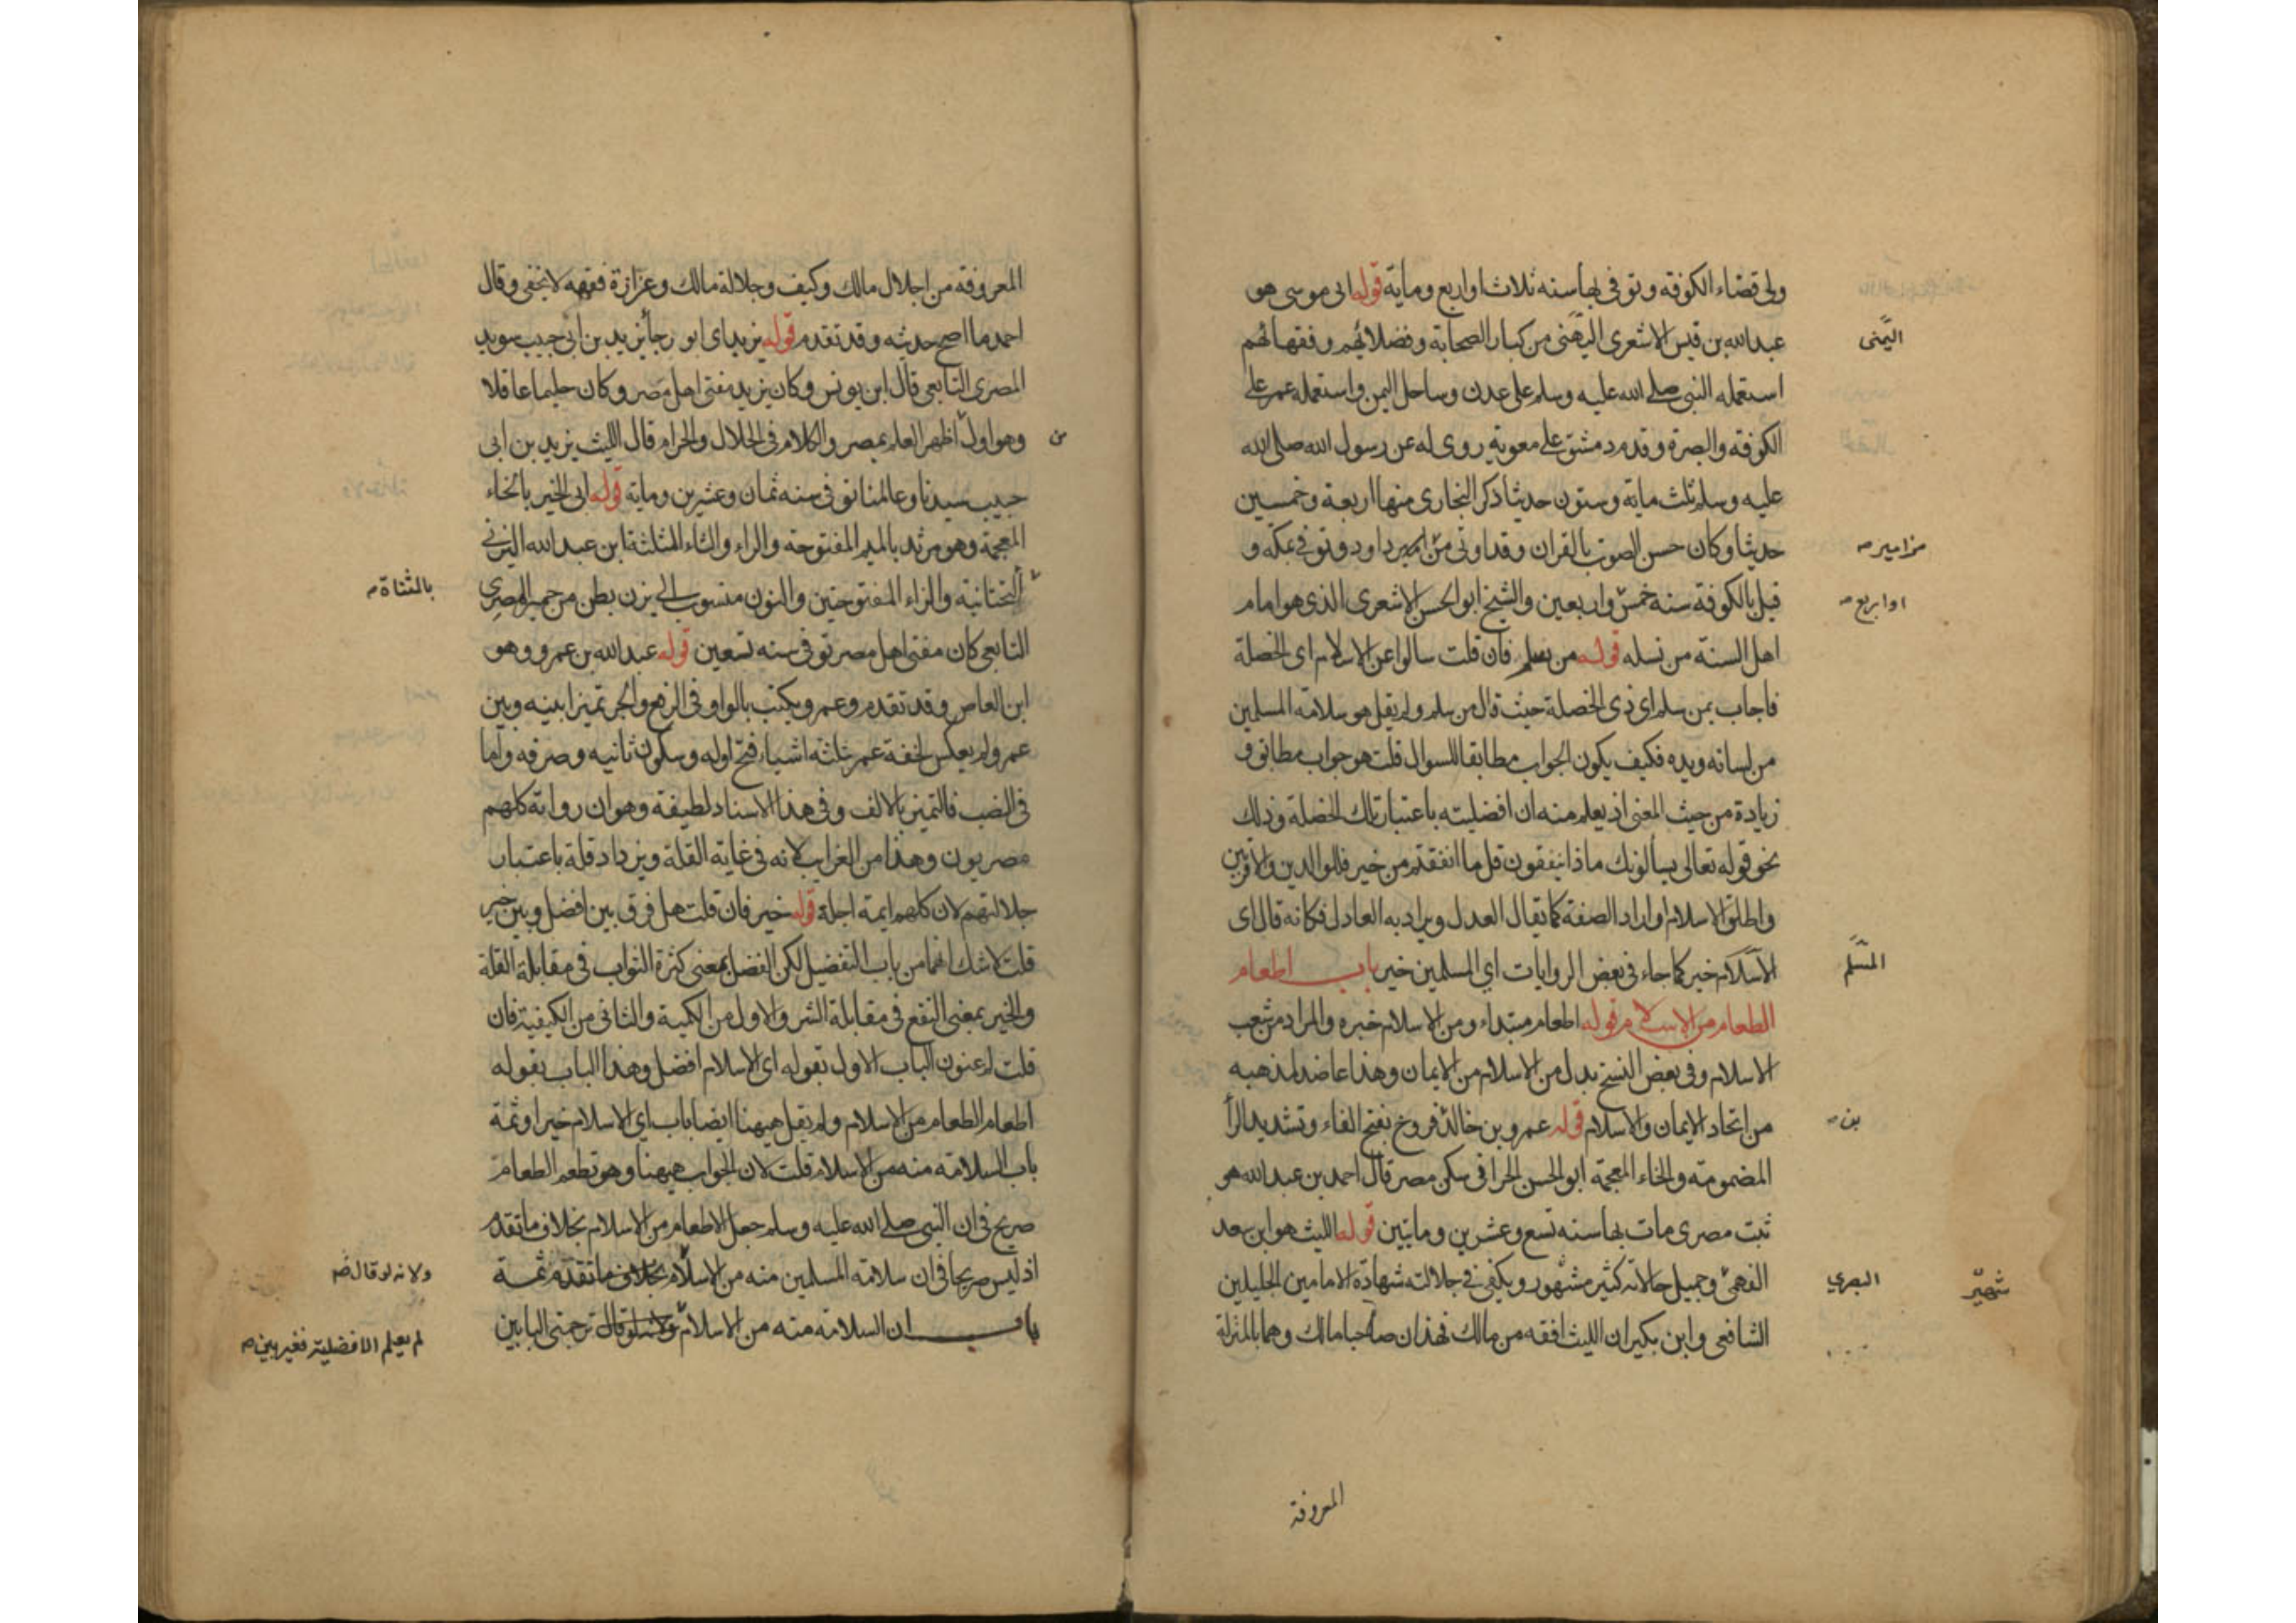 ولى قضاء الكوفة وتوفى بها سنة ثلاث او اربع وماية قوله ابى موسى هو
عبد الله بن قيس الاشعرى اليمنى من كبار الصحابة وفضلائهم وفقهائهم
اليمنى
استعمله النبى صلى الله عليه وسلم على عدن وساحل اليمن واستعمله عمر على
الكوفة والبصرة وقدم دمشق على معوية روى له عن رسول الله صلى الله
عليه وسلم ثلث ماية وستون حديثا ذكر البخارى منها اربعة وخمسين
حديثا وكان حسن الصوت بالقران وقد اوتى من امير داود وتوفى بمكة و
مزامير
قيل بالكوفة سنة خمس واربعين والشيخ ابو الحسن الاشعرى الذى هو امام
او اربع
اهل السنة من نسله قوله من سلم فان قلت سالوا عن الاسلام اى الخصلة
فاجاب بمن سلم اى ذى الخصلة حيث قال من سلم ولم يقل هو سلامة المسلمين
من لسانه ويده فكيف يكون الجواب مطابقا للسوال قلت هو جواب مطابق و
زيادة من حيث المعنى اذ يعلم منه ان افضليته باعتبار تلك الخصلة وذلك
نحو قوله تعالى يسألونك ماذا ينفقون قل ما انفقتم من خير فللوالدين والاقربين
واطلق الاسلام واراد الصفة كما يقال العدل ويراد به العادل فكانه قال اى
الاسلام خير كما جاء فى بعض الروايات اي المسلمين خير باب اطعام
المسلم
الطعام من الاسلام قوله اطعام مبتداء ومن الاسلام خبره والمراد من شعب
الاسلام وفى بعض النسخ بدل من الاسلام من الايمان وهذا عاضد لمذهبه
من اتحاد الايمان والاسلام قوله عمرو بن خالد فروخ بفتح الفاء وتشديد الرأ
بن
المضمومة والخاء المعجمة ابو الحسن الحرانى سكن مصر قال احمد بن عبد الله هو
ثبت مصرى مات بها سنة تسع وعشرين وماتين قوله الليث هو ابن سعد
الفهمى وجميل حالاته كثير مشهور ويكفى فى جلالته شهادة الامامين الجليلين
البصري
شهير
الشافعى وابن بكير ان الليث افقه من مالك فهذان صاحبا مالك وهما بالمنزلة
المعروفة
المعروفة من اجلال مالك وكيف وجلالة مالك وعزازة فقهه لا تخفى وقال
احمد ما اصح حديثه وقد تقدم قوله يزيد اى ابو رجأ يزيد بن ابى حبيب سويد
المصرى التابعى قال ابن يونس وكان يزيد مفتى اهل مصر وكان حليما عاقلا
وهو اول اظهر العلم بمصر والكلام فى الحلال والحرام قال الليث يزيد بن ابى
من
حبيب سيدنا وعالمنا توفى سنة ثمان وعشرين وماية قوله ابى الخير بالخاء
المعجمة وهو مرثد بالميم المفتوحة والراء والثاء المثلثة ابن عبد الله اليزنى
التحتانية والزاء المفتوحتين والنون منسوب الى يزن بطن من حمير المصرى
بالمثناة
التابعى كان مفتى اهل مصر توفى سنة تسعين قوله عبد الله بن عمرو وهو
ابن العاص وقد تقدم وعمرو يكتب بالواو فى الرفع والجر تميزا بينه وبين
عمر ولم يعكس لخفة عمر بثلثة اشياء فتح اوله وسكون ثانيه وصرفه واما
فى النصب فالتميز بالالف وفى هذا الاسناد لطيفة وهو ان رواته كلهم
مصريون وهذا من الغرايب لانه فى غاية القلة ويزداد قلة باعتبار
جلالتهم لان كلهم ايمة اجلة قوله خير فان قلت هل فرق بين افضل وبين خير
قلت لا شك انهما من باب التفضيل لكن الفضل بمعنى كثرة الثواب فى مقابلة القلة
والخير بمعنى النفع فى مقابلة الشر والاول من الكمية والثانى من الكيفية فان
قلت لم عنون الباب الاول بقوله اى الاسلام افضل وهذا الباب بقوله
اطعام الطعام من الاسلام ولم يقل هيهنا ايضا باب اى الاسلام خير او ثمة
باب السلامة منه من الاسلام قلت لان الجواب هيهنا وهو تطعم الطعام
صريح فى ان النبى صلى الله عليه وسلم جعل الاطعام من الاسلام بخلاف ما تقدم
اذ ليس صريحا فى ان سلامة المسلمين منه من الاسلام بخلاف ما تقدم ثمة
ولانه لو قال
باب ان السلامة منه من الاسلام ولانه لو قال ترجمتى البابين
لم يعلم الافضلية فغير بين